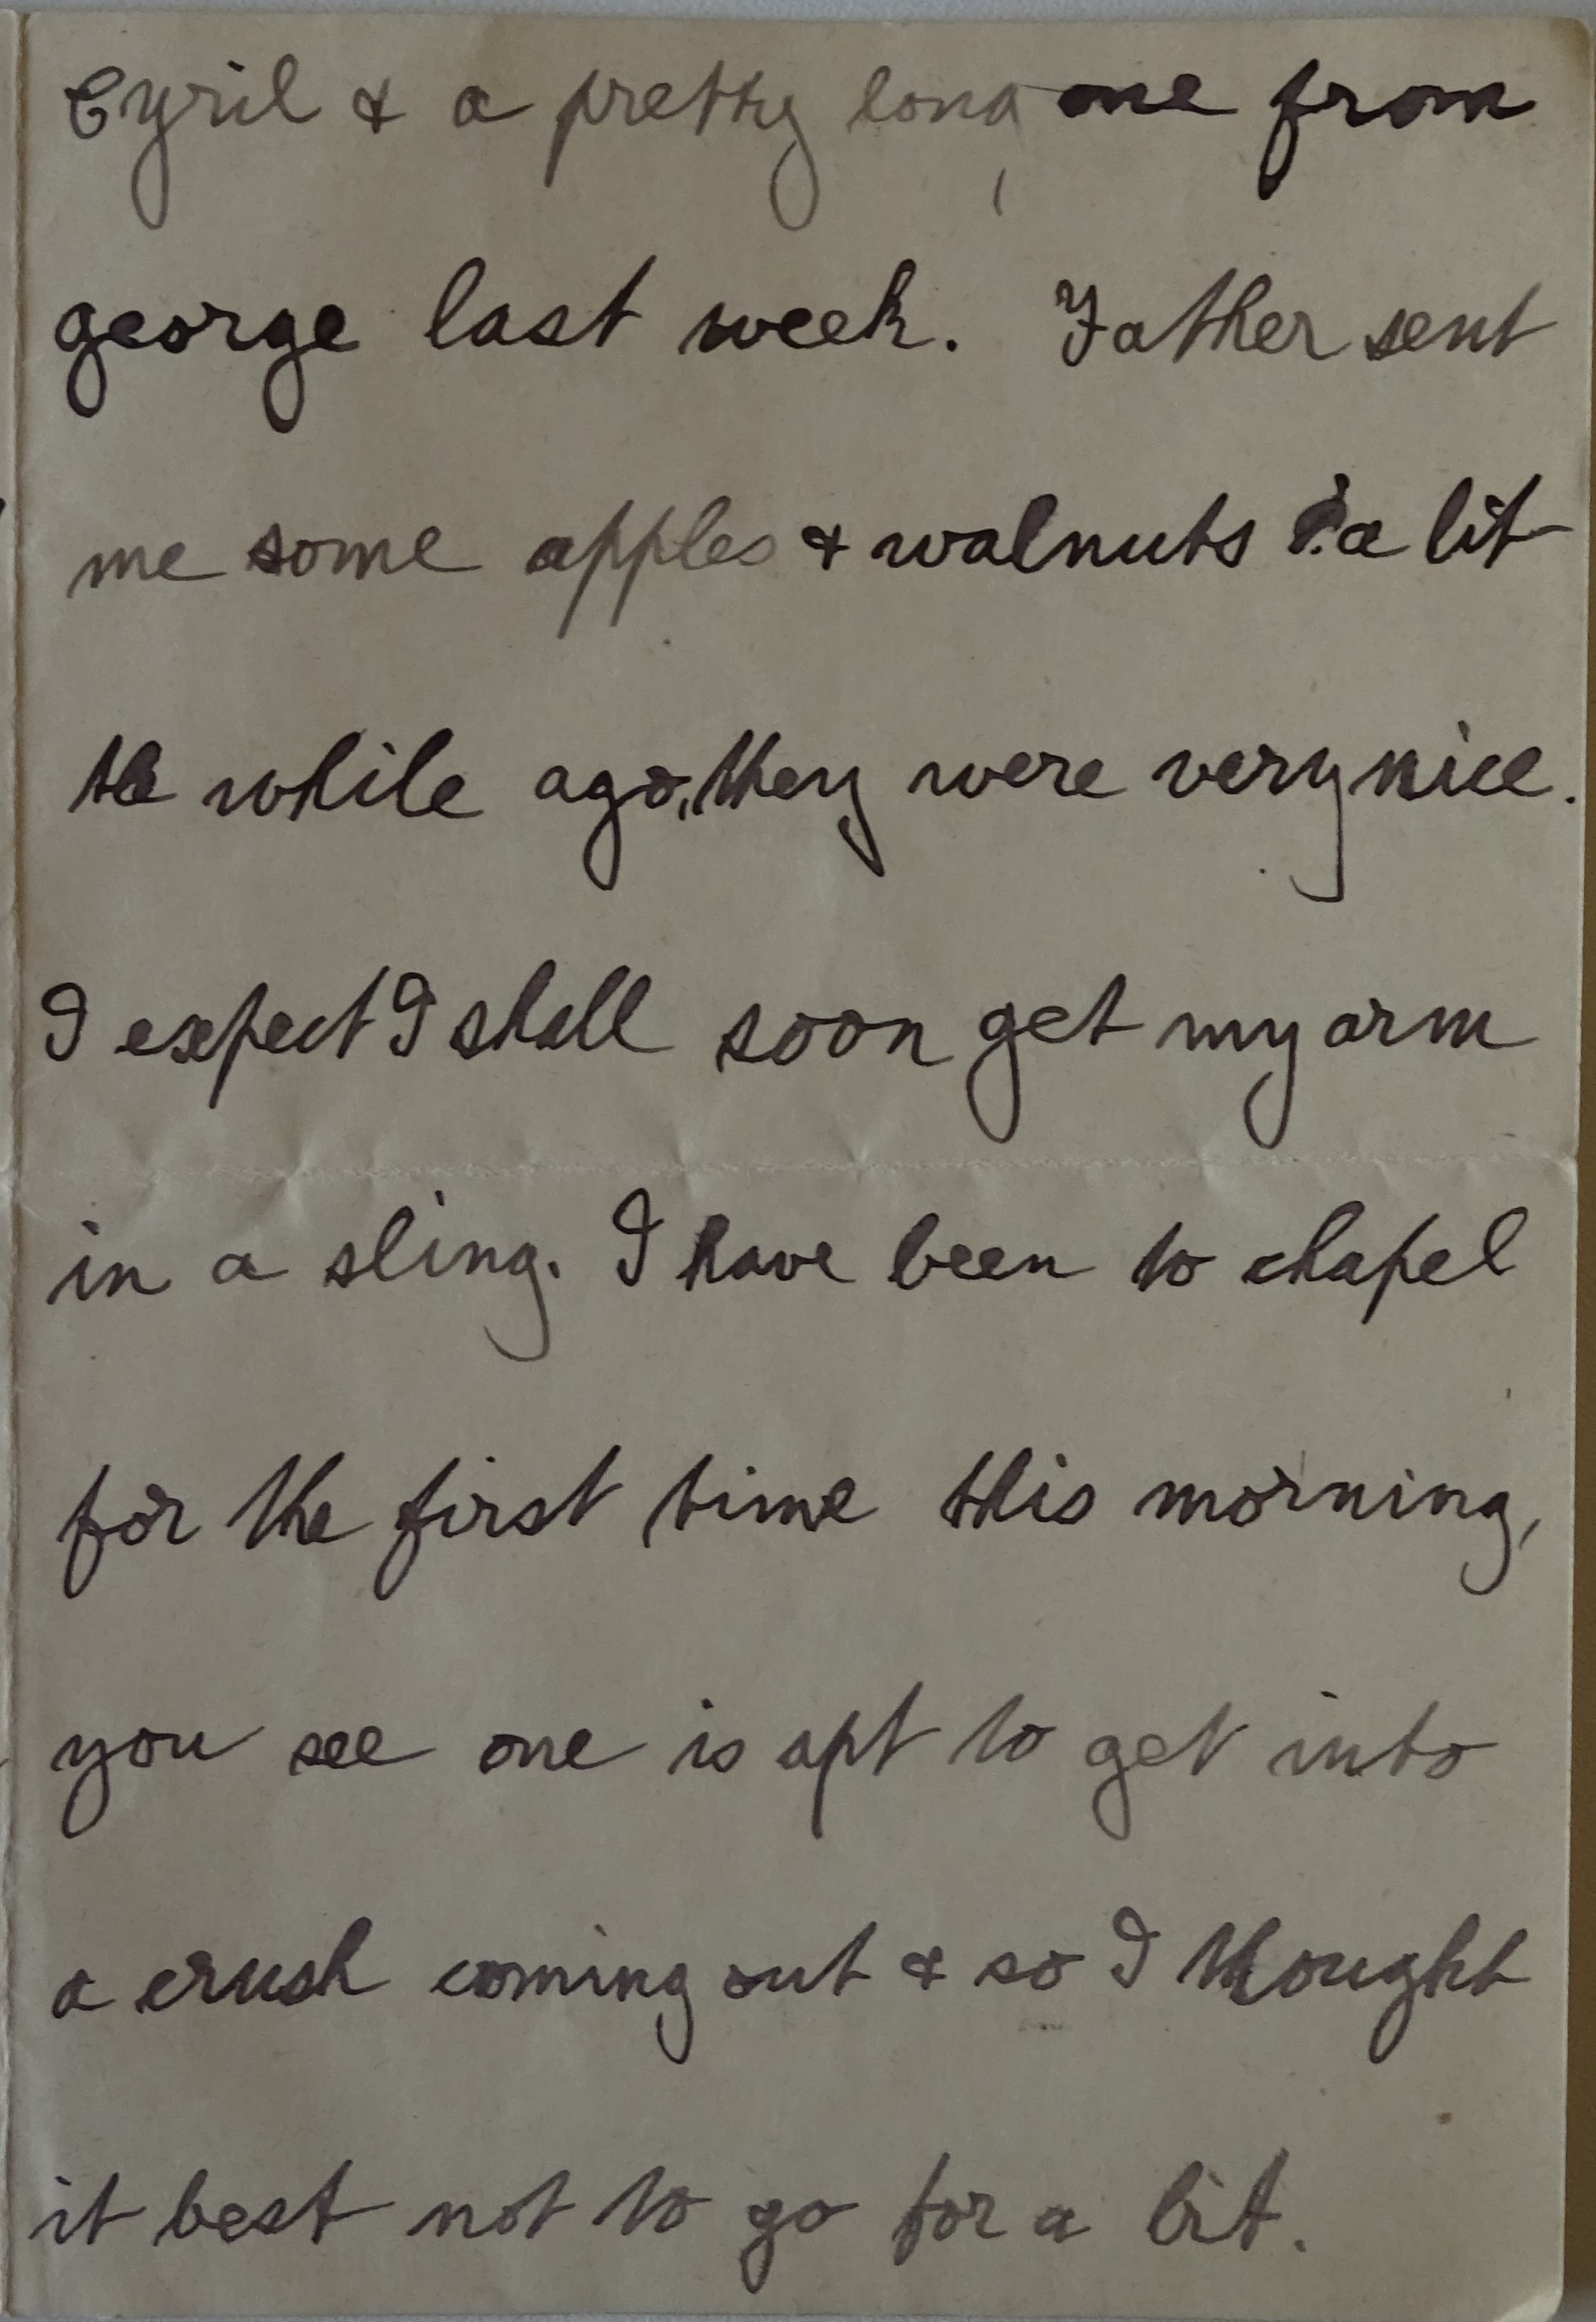 Cyril & a pretty long one from
george last week. Father sent
me some apples & walnuts a lit
tle while ago, they were very nice.
I expect I shall soon get my arm
in a sling. I have been to chapel
for the first time this morning,
you see one is apt to get into
a crush coming out & so I thought
it best not to go for a bit.